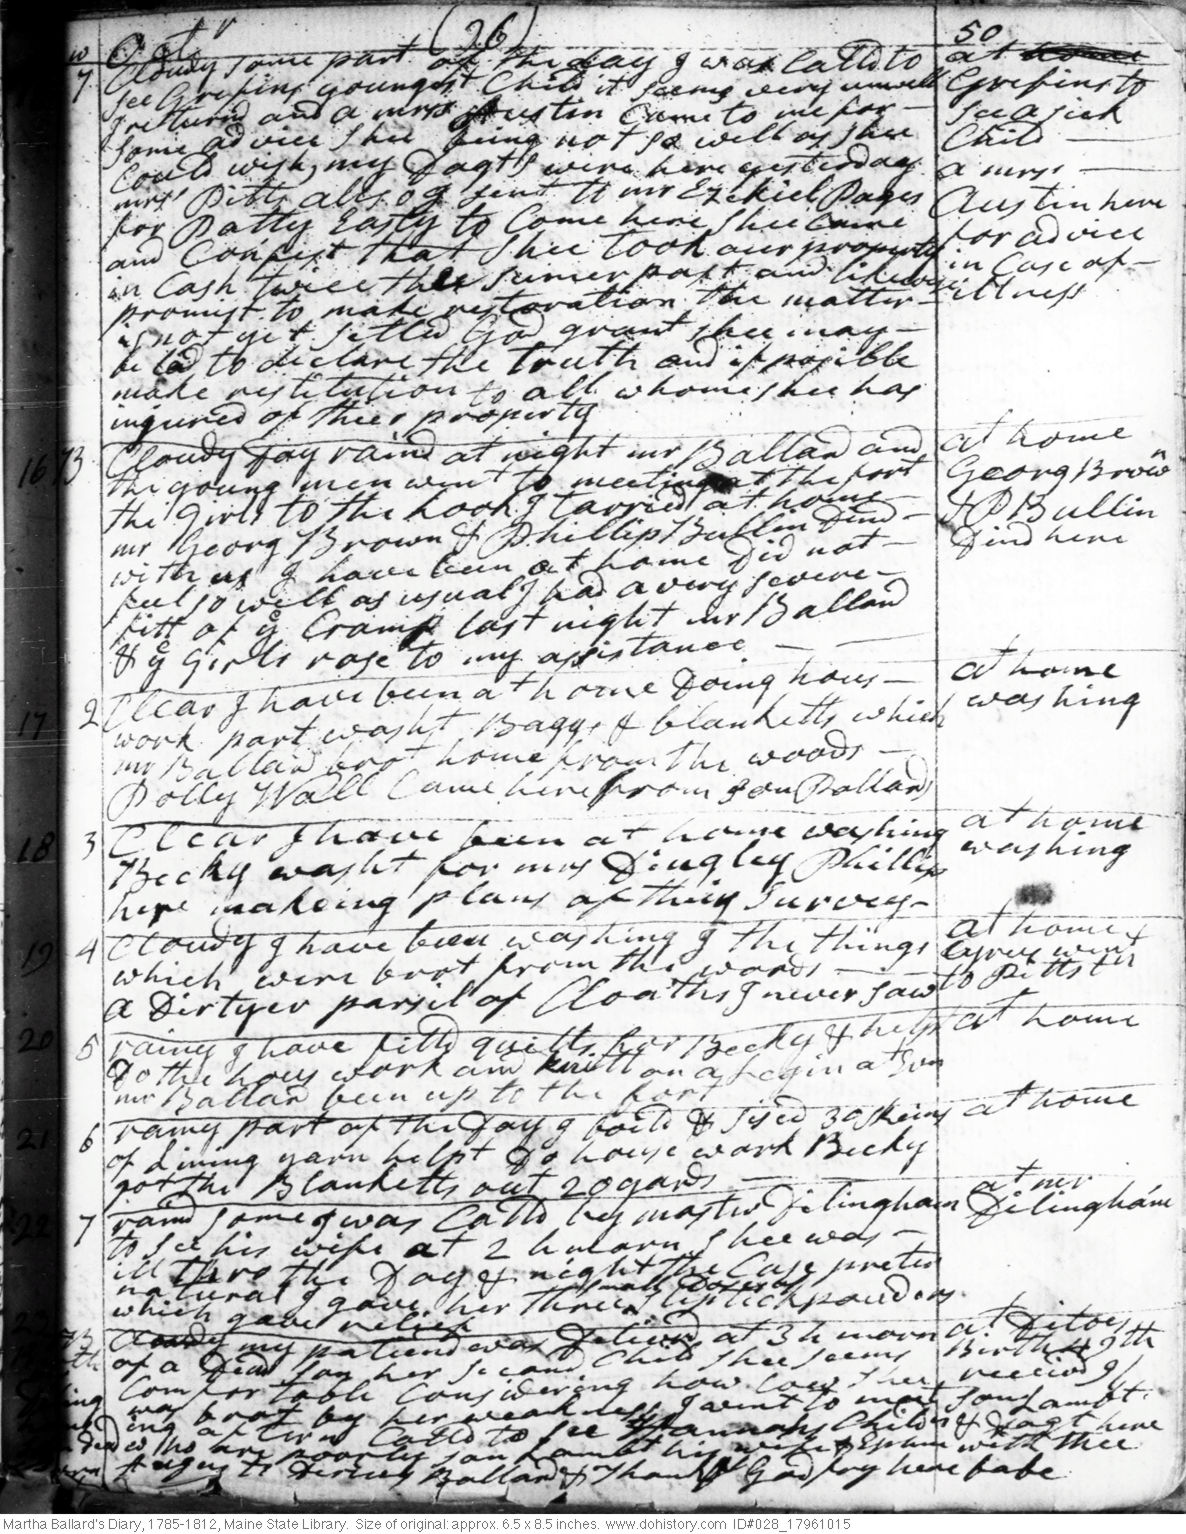 Octr (26) 50
7 Cloudy some part of the day I was Calld to at home
see Grifins youngest Child it seems very unwell Grifins to
I returnd and a mrss Austin Came to me for see a sick
some advice shee being not so well as shee Child
Could wish, my Dagts were here yesterday a mrss
mrss Pitts allso I sent to mr Ezekiel Pages Austin here
for Patty Easty to Come here shee Came for advice
and Confest that shee took our property in Case of
in Cash twice this sumer past and likewise illness
promist to make restoration the matter
is not yet settled God grant shee may
be led to declare the truth and if posible
make restitution to all whome shee has
injured of theer property
16 73 Cloudy Day raind at night mr Ballard and at home
the young men went to meeting at the fort Georg Brown
the girls to the hook I tarried at home & P Bullin
mr Georg Brown & Phillip Bullin Dind Dind here
with us I have been at home Did not
feel so well as usual I had a very severe
fitt of ye Cramp last night mr Ballard
& ye Girls rose to my assistance
17 2 Clear I have been at home Doing hous at home
work part washt Baggs & blanketts which washing
mr Ballard brot home from the woods
Polly Wall Came here from Jon Ballards
18 3 Clear I have been at home washing at home
Becky washt for mrs Dingley Phillip washing
here makeing plans of thier survey
19 4 Cloudy I have been washing of the things at home
which were brot from the woods Cyrus went
a Dirtyer parsil of Cloaths I never saw to Pittstn
20 5 rainy I have fitld quilts for Becky & helpt at home
Do the hous work and knitt on a
mr Ballard been up to the fort
21 6 rainy part of the Day I boild & 30 skeins at home
of Lining yarn helpt Do house work Becky
got the Blanketts out 20 yards
22 7 raind some I was Calld by mastr Dilingham at mr
to see his wife at 2 h morn shee was Dilinghams
ill thro the Day & night the Case preter
natural I gave her three small Doses of Stiptick pouders
which gave relief
23 73 Cloudy my patiend was Delivrd at 3 h morn at Ditoes
of a Dead son her second Child shee seems Birth 39th
Comfortable Considering how low shee receivd
was brot by her weakness I went to meet son Lambt
ing aftern Calld to see Hannahs Childn & Dagt here
who are poorly son Lambt his wife & Ephm with thee
Ballard & Thank God fry here babe
Martha Ballard's Diary, 1785-1812, Maine State Library. Size of original: approx. 6.5 x 8.5 inches. www.dohistory.com ID#028_17961015